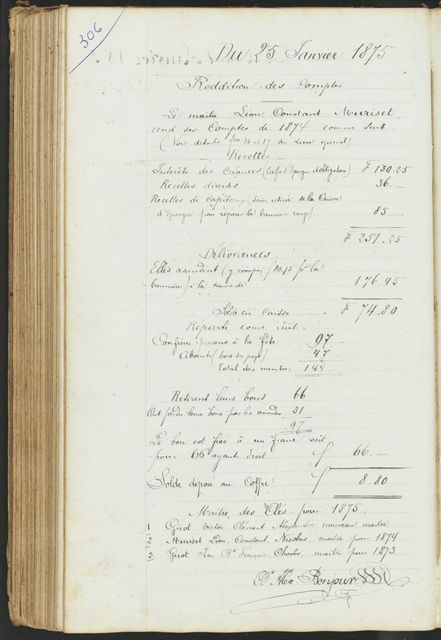 306
Du 25 Janvier 1875
Reddition des Comptes
Le maitre Léon Constant Muriset,
rend ses Comptes de 1874 comme suit
(Voir détails fos 16 et 17 du Livre spécial)
Recettes
Intérêts des Créances (Caisse d'Epargne & obligations) F 130.25
Recettes diverses 36.—
Recettes de Capitaux, somme retirée de la Caisse
d'Epargne (pour réparer la bannière rouge) 85—
F 251.25
Délivrances
Elles ascendent (y compris f 80,15 pr la
bannière) à la somme de 176.45
Solde en Caisse F 74.80
Réparti comme suit.
Confrères présens à la fête 97
Absents (hors du pays) 47
Total des membres 144
Retirent leurs bons 66
Ont perdu leurs bons par les amendes 31
97
Le bon est fixé à un franc soit
pour 66 ayant droit f 66.—
Solde déposé au Coffre f 8.80
Maitres des Clés pour 1875.
1 Gicot Victor Clément Alexandre nouveau maitre
2 Muriset Léon Constant Nicolas, maitre pour 1874
3 Gicot Jean Bte François Charles, maitre pour 1873
Alex Bonjour